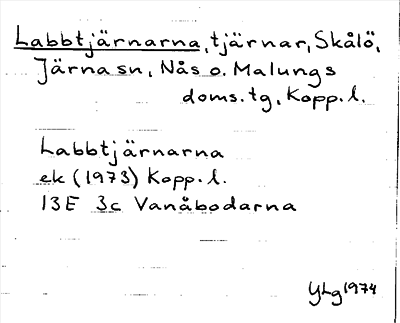 Labbtjärnarna, tjärnar, Skålö,
Järna sn, Nås o. Malungs
doms.tg, Kopp.l.
Labbtjärnarna
ek (1973) Kopp.l.
13E 3c Vanåbodarna
YLg 1974